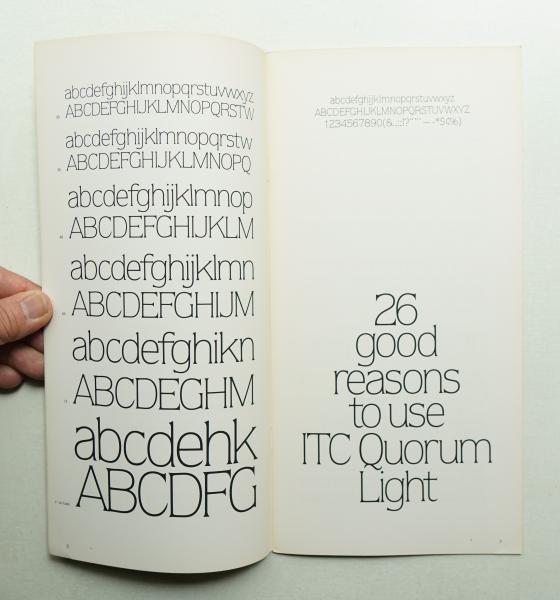 abcdefghijklmnopqrstuvwxyz
ABCDEFGHIJKLMNOPQRSTW
abcdefghijklmnopqrstw
ABCDEFGHIJKLMNOPQ
abcdefghijklmnop
ABCDEFGHIJKLM
abcdefghijklmn
ABCDEFGHIJM
abcdefghikn
ABCDEGHM
abcdehk
ABCDFG
abcdefghijklmnopqrstuvwxyz
ABCDEFGHIJKLMNOPQRSTUVWXYZ
26
good
reasons
to use
ITC Quorum
Light